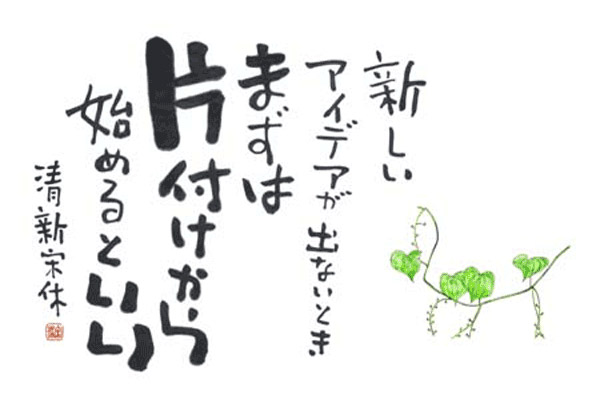 新しい
アイデアが出ないとき
まずは
片付けから
始めるといい
清新宋休